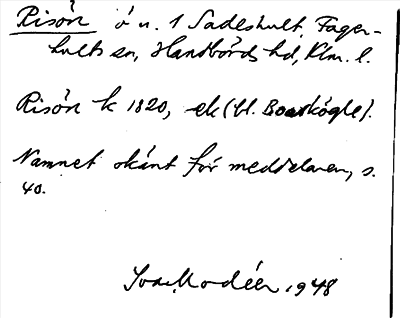 Risön ö u. 1 Sadeshult, Fager-
hults sn, Handbörds hd, Klm. l.
Risön k 1820, ek (bl. Boaskögle).
Namnet okänt för meddelaren, s.
40.
Ivar Modéer 1948